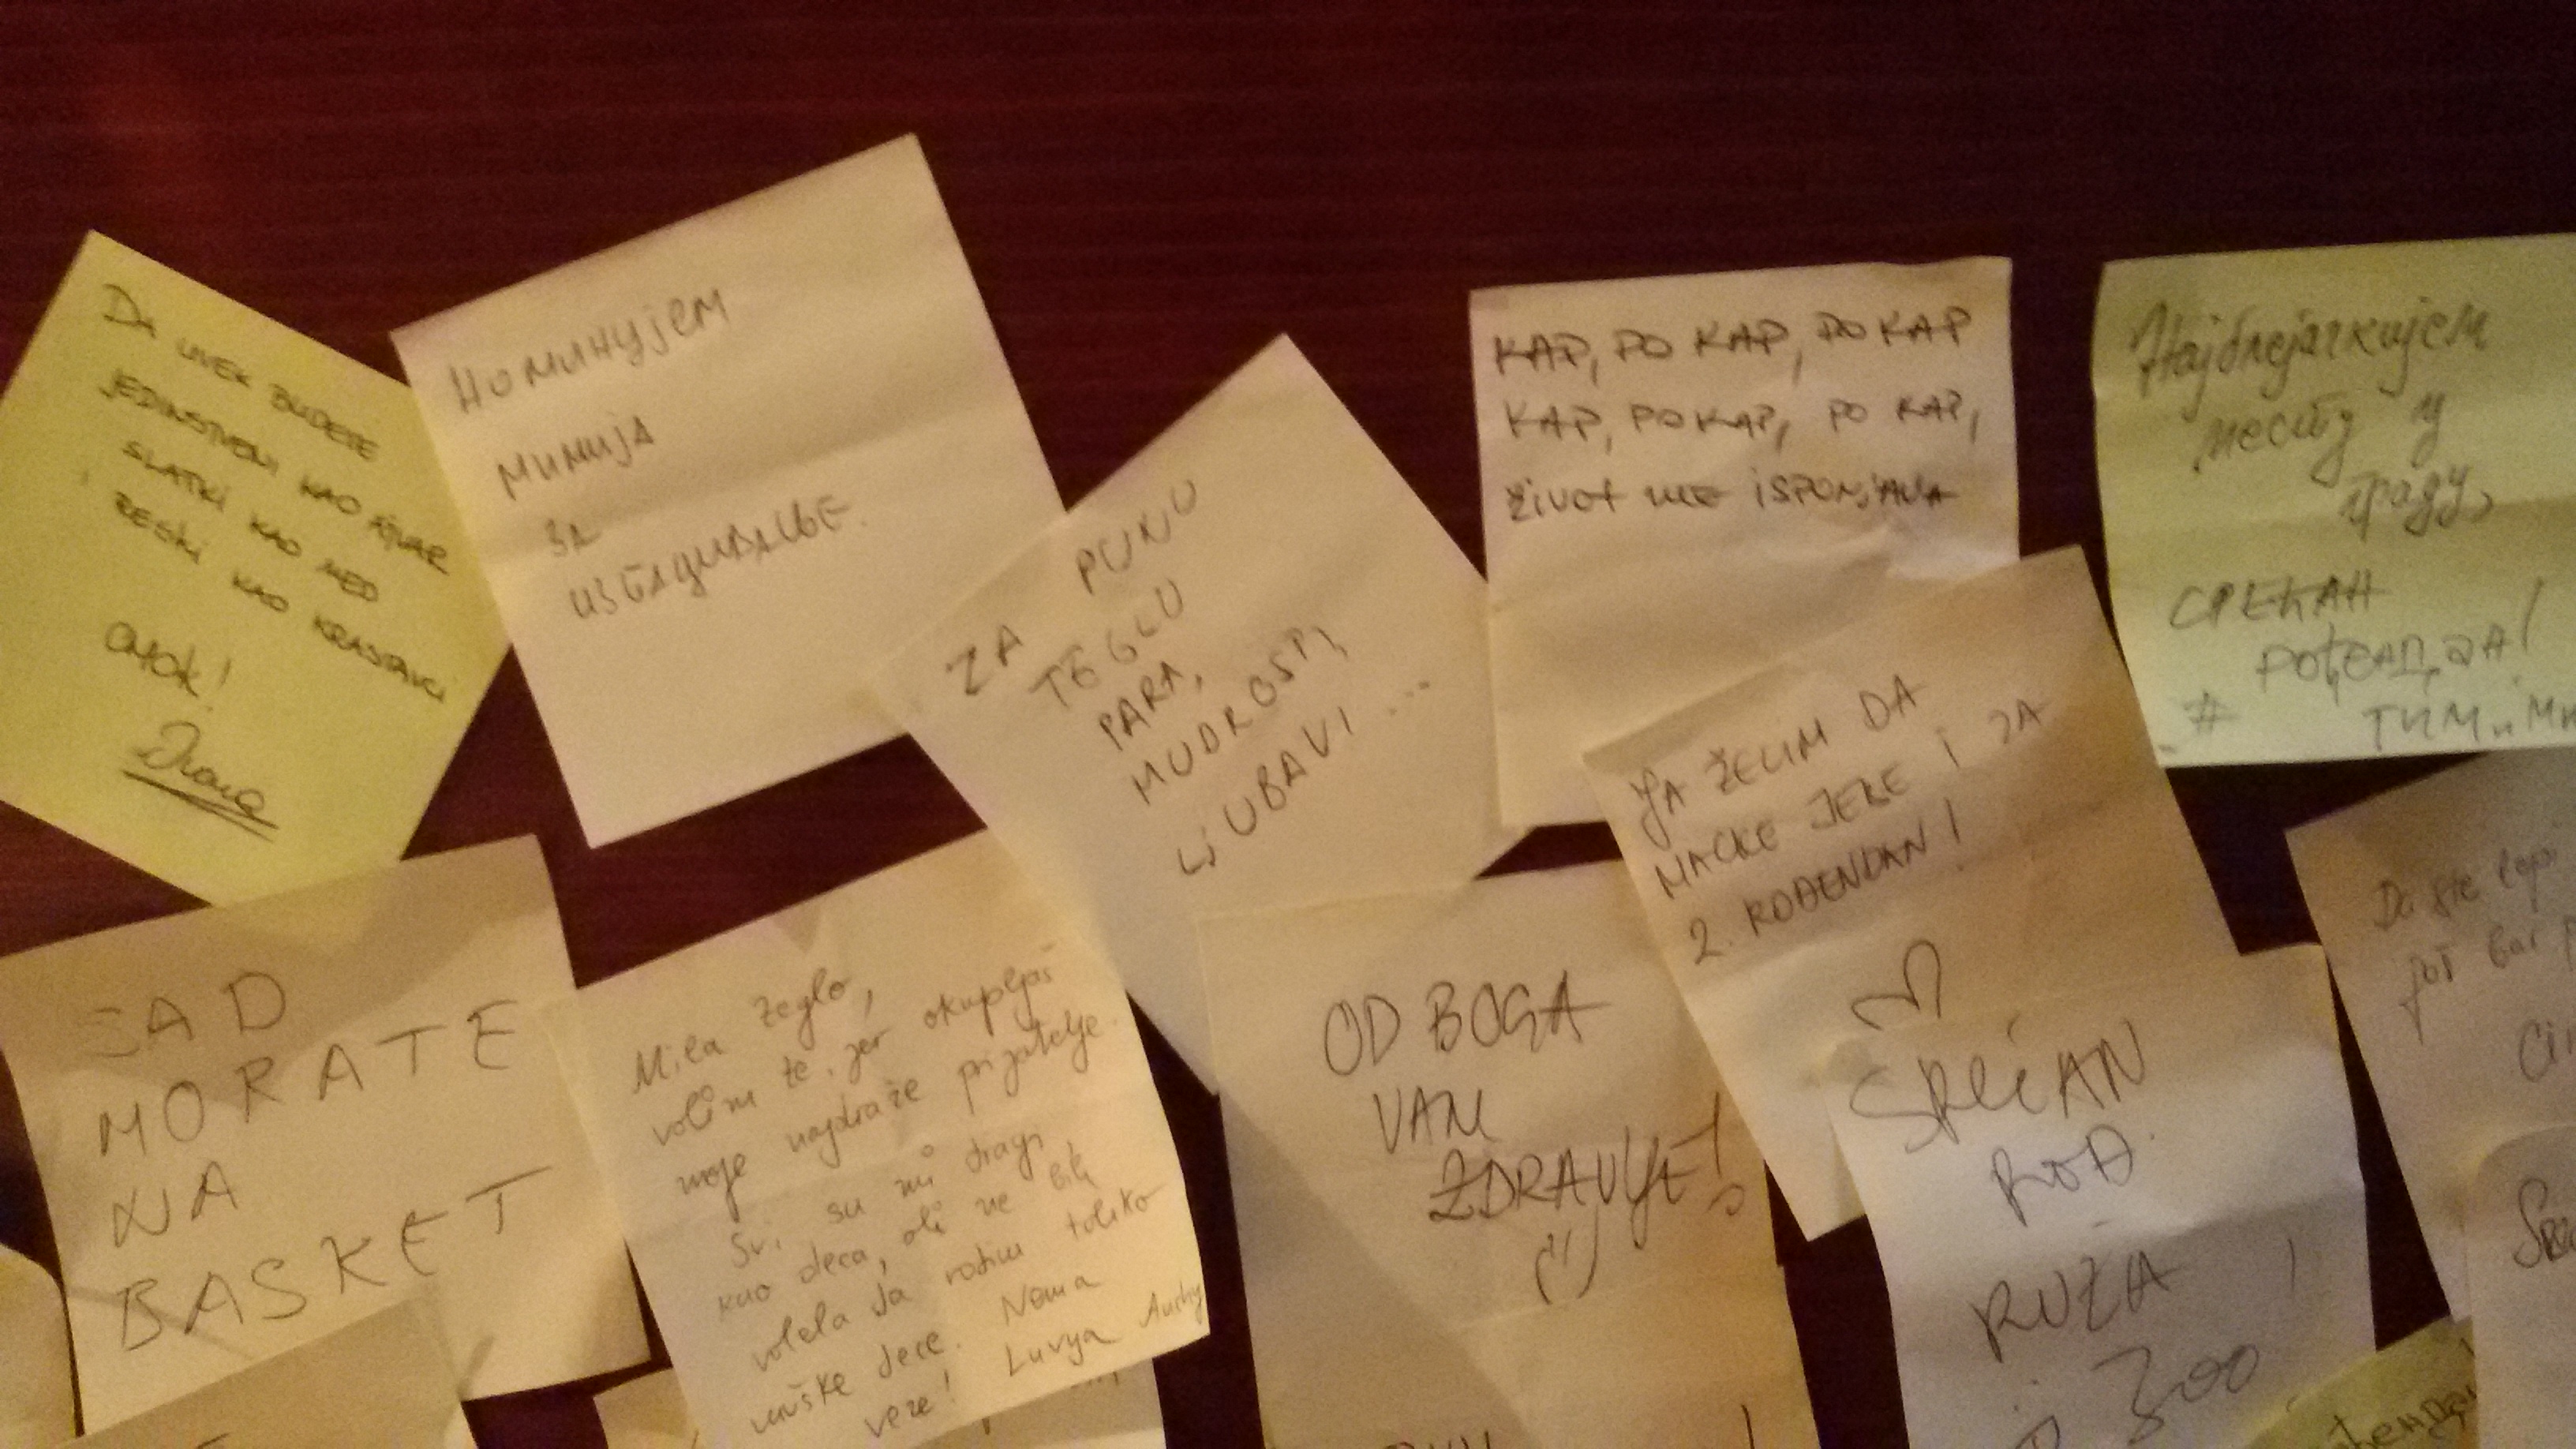 DA UVEK BUDETE
JEDINSTVENI KAO AJVAR
SLATKI KAO MED
I RESKI KAO KRASTAVCI
CMOK!
НОМИНУЈЕМ
МИМИЈА
ЗА
ZA PUNU
TEGLU
PARA,
MUDROSTI,
LJUBAVI ...
KAP, PO KAP, PO KAP
KAP, PO KAP, PO KAP,
ŽIVOT ME ISPUNJAVA
Најбнејаткијем
месту у
граду,
СРЕЋАН
РОЂЕНДАН!
#
ТИМ
JA ŽELIM DA
MAČKE JEBE I ZA
2. ROĐENDAN!
SAD
MORATE
NA
BASKET
Mila teglo,
volim te, jer okupljaš
moje najdraže prijatelje.
Svi su mi dragi
kao deca, ali ne bih
volela da rodim toliko
muške dece. Nema
veze! Luvya
OD BOGA
VAM
ZDRAVLJE!
SREĆAN
ROĐ.
RUŽA
300
Da ste lepi
još bar